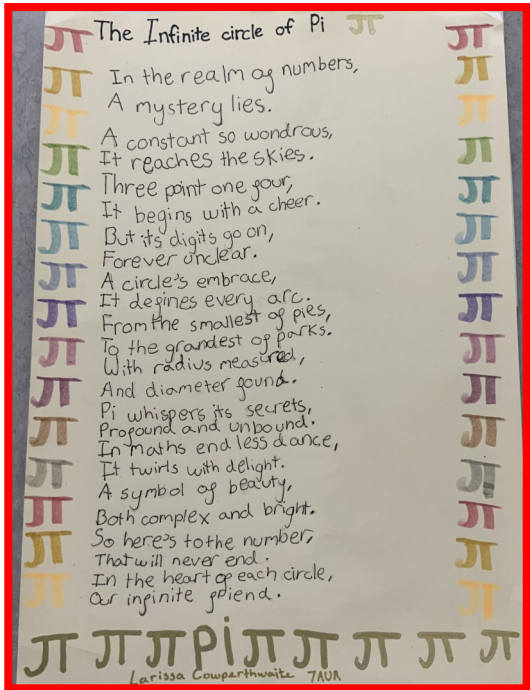 The Infinite circle of Pi π
π π
π In the realm of numbers, π
π A mystery lies. π
A constant so wondrous,
π It reaches the skies. π
π Three point one four, π
It begins with a cheer.
π But its digits go on, π
Forever unclear.
π A circle's embrace, π
π It defines every arc. π
From the smallest of pies,
π To the grandest of parks. π
With radius measured,
π And diameter found. π
Pi whispers its secrets,
π Profound and unbound. π
In maths endless dance,
π It twirls with delight. π
A symbol of beauty,
π Both complex and bright. π
π So here's to the number, π
That will never end.
π In the heart of each circle, π
Our infinite friend.
π π π pi π π π π π
Larissa Cowperthwaite 7AUR